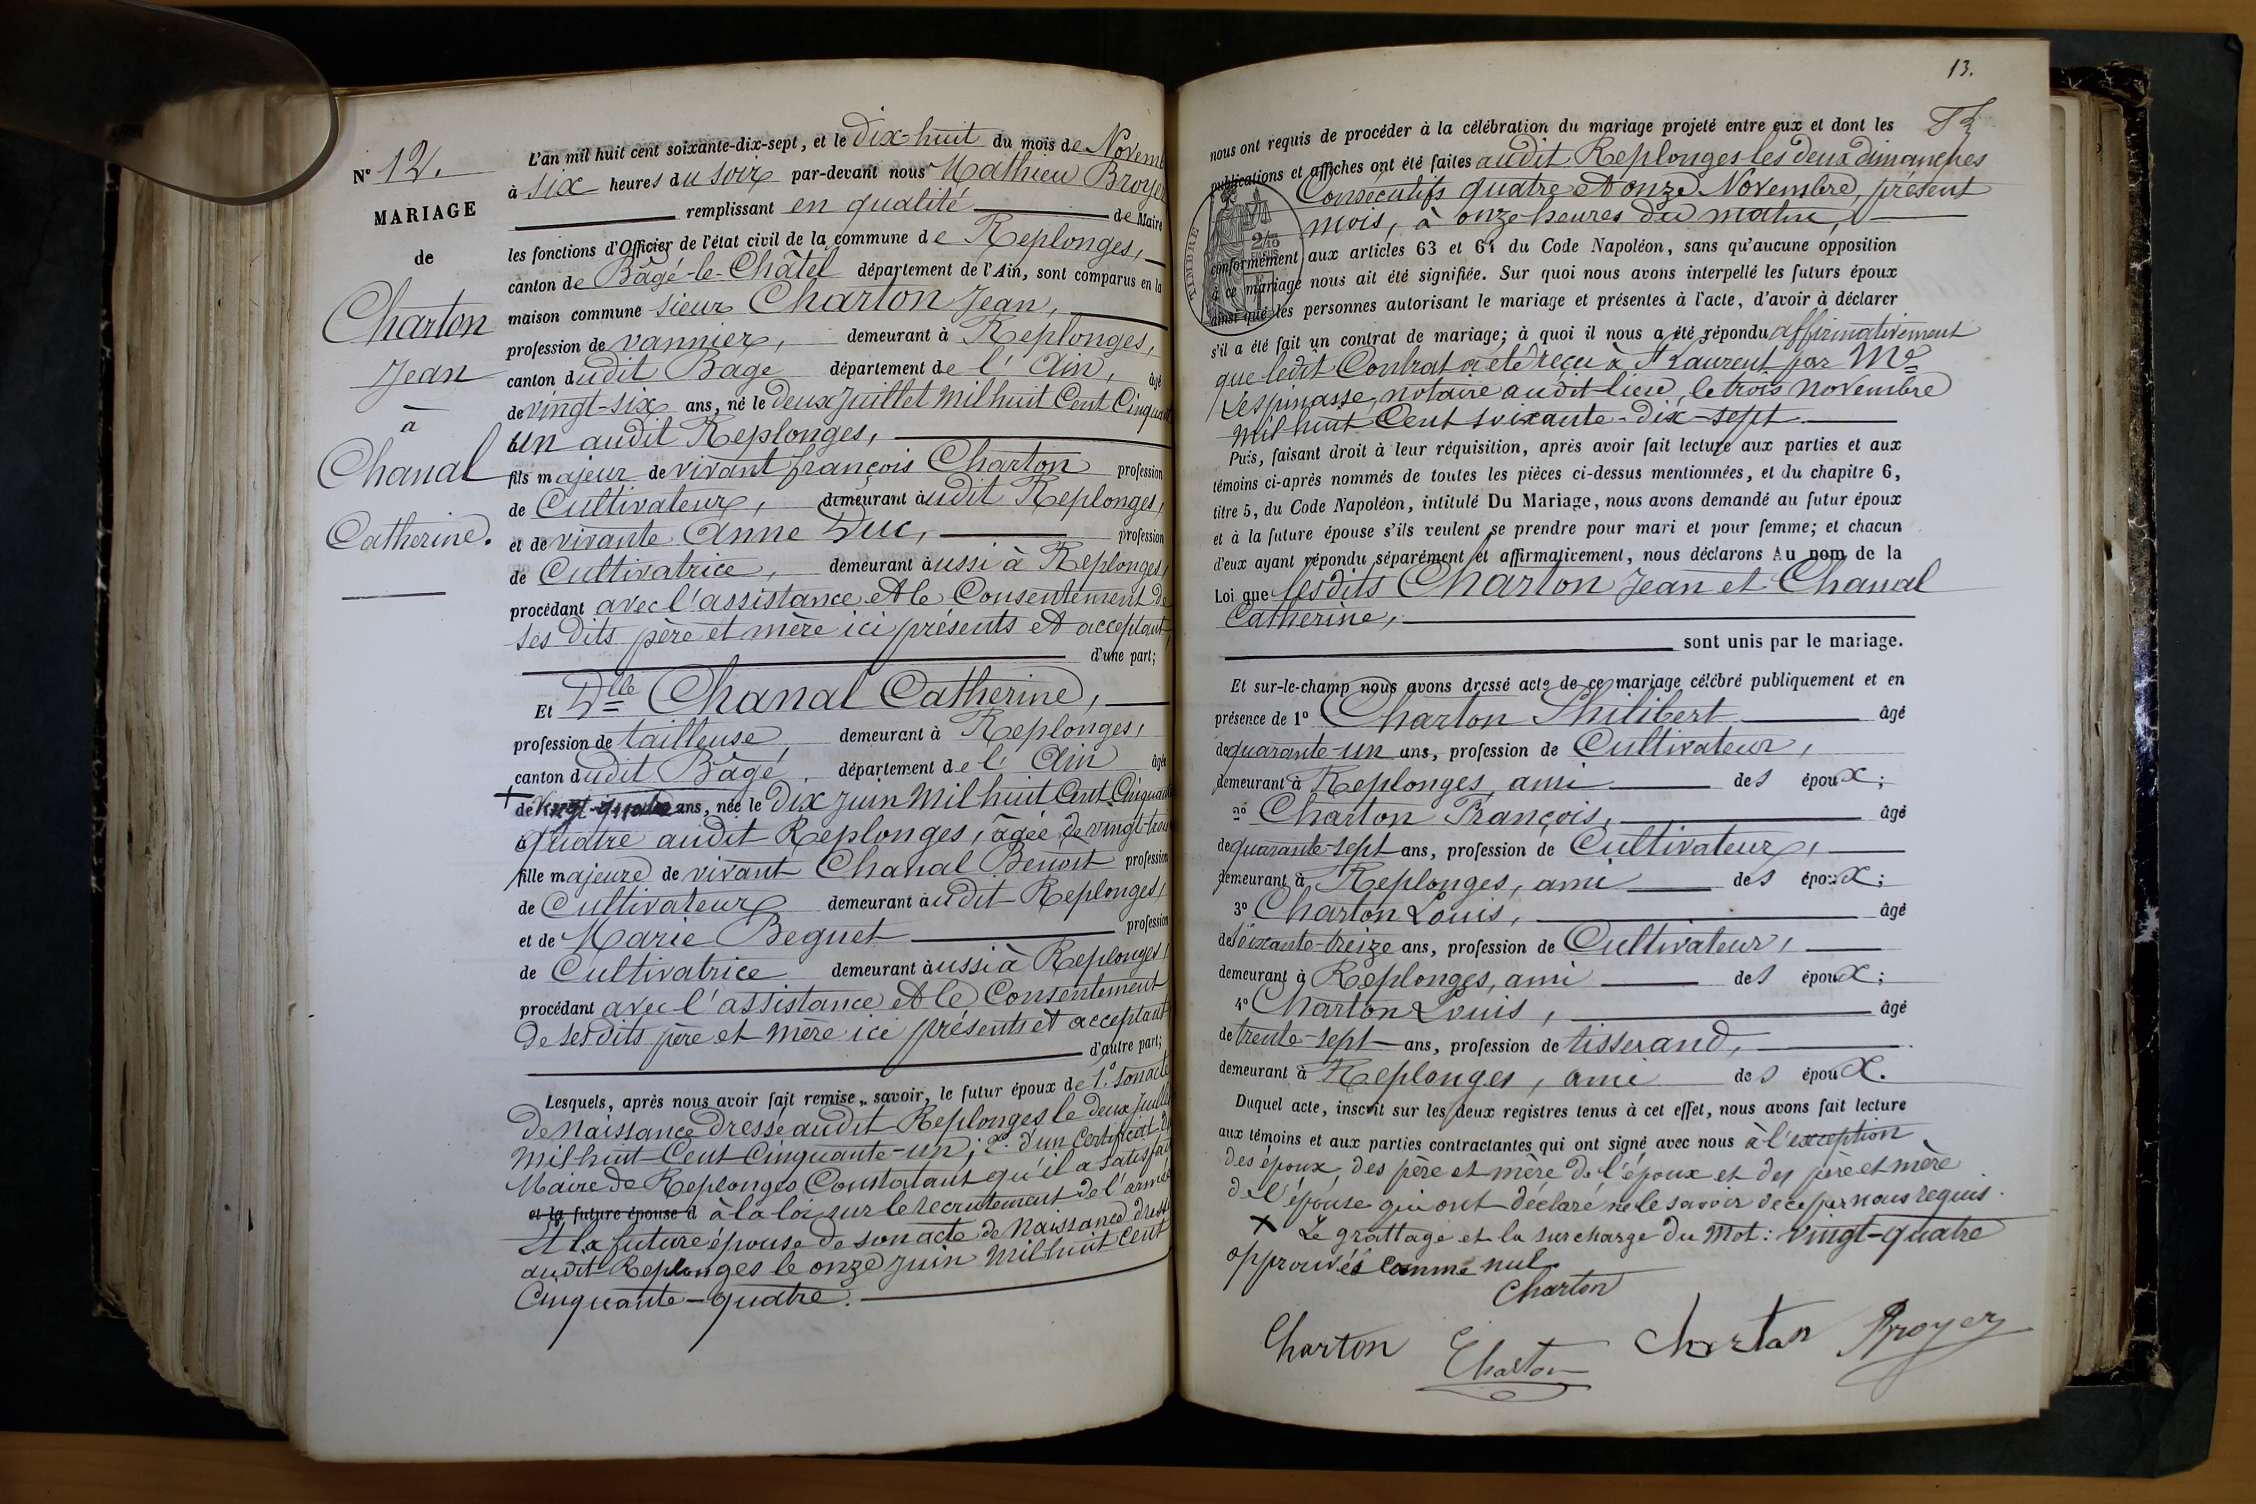 N° 12.
MARIAGE
de
Charton
Jean
à
Chanal
Catherine.
L'an mil huit cent soixante-dix-sept, et le dix-huit du mois de Novemb
à six heures du soir par-devant nous Mathieu Broyer
remplissant en qualité de Maire
les fonctions d'Officier de l'état civil de la commune de Replonges,
canton de Bâgé-le-Châtel département de l'Ain, sont comparus en la
maison commune sieur Charton Jean,
profession de vannier, demeurant à Replonges,
canton dudit Bâgé département de l'Ain, âgé
de vingt-six ans, né le deux Juillet mil huit Cent Cinquante
un audit Replonges,
fils majeur de vivant françois Charton profession
de Cultivateur, demeurant audit Replonges,
et de vivante Anne Duc, profession
de Cultivatrice, demeurant aussi à Replonges,
procédant avec l'assistance et le Consentement de
ses dits père et mère ici présents et acceptant
d'une part;
Et Dlle Chanal Catherine,
profession de tailleuse demeurant à Replonges,
canton dudit Bâgé, département de l'Ain âgée
+ de vingt-quatre ans, née le dix Juin mil huit Cent Cinquante
quatre audit Replonges, âgée de vingt-trois
fille majeure de vivant Chanal Benoit profession
de Cultivateur demeurant audit Replonges,
et de Marie Beguet profession
de Cultivatrice demeurant aussi à Replonges,
procédant avec l'assistance et le Consentement
de ses dits père et mère ici présents et acceptant
d'autre part;
Lesquels, après nous avoir fait remise, savoir, le futur époux de 1° son acte
de Naissance dressé audit Replonges le deux Juillet
mil huit Cent Cinquante-un; 2° d'un Certificat du
Maire de Replonges Constatant qu'il a satisfait
et la future épouse d à la loi sur le recrutement de l'armée
Et la future épouse de son acte de Naissance dressé
audit Replonges le onze Juin mil huit Cent
Cinquante-quatre.
13.
nous ont requis de procéder à la célébration du mariage projeté entre eux et dont les
publications et affiches ont été faites audit Replonges les deux dimanches
Consécutifs quatre et onze Novembre, présent
mois, à onze heures du matin,
TIMBRE
conformément aux articles 63 et 64 du Code Napoléon, sans qu'aucune opposition
à ce mariage nous ait été signifiée. Sur quoi nous avons interpellé les futurs époux
ainsi que les personnes autorisant le mariage et présentes à l'acte, d'avoir à déclarer
s'il a été fait un contrat de mariage; à quoi il nous a été répondu affirmativement
que ledit Contrat a été reçu à St Laurent par Me
Lespinasse, notaire audit lieu, le trois Novembre
mil huit Cent soixante-dix-sept.
Puis, faisant droit à leur réquisition, après avoir fait lecture aux parties et aux
témoins ci-après nommés de toutes les pièces ci-dessus mentionnées, et du chapitre 6,
titre 5, du Code Napoléon, intitulé Du Mariage, nous avons demandé au futur époux
et à la future épouse s'ils veulent se prendre pour mari et pour femme; et chacun
d'eux ayant répondu séparément et affirmativement, nous déclarons Au nom de la
Loi que lesdits Charton Jean et Chanal
Catherine,
sont unis par le mariage.
Et sur-le-champ nous avons dressé acte de ce mariage célébré publiquement et en
présence de 1° Charton Philibert âgé
de quarante-un ans, profession de Cultivateur,
demeurant à Replonges, ami des époux;
2° Charton François, âgé
de quarante-sept ans, profession de Cultivateur,
demeurant à Replonges, ami des époux;
3° Charton Louis, âgé
de soixante-treize ans, profession de Cultivateur,
demeurant à Replonges, ami des époux;
4° Charton Louis, âgé
de trente-sept ans, profession de tisserand,
demeurant à Replonges, ami des époux.
Duquel acte, inscrit sur les deux registres tenus à cet effet, nous avons fait lecture
aux témoins et aux parties contractantes qui ont signé avec nous à l'exception
des époux, des père et mère de l'époux et des père et mère
de l'épouse qui ont déclaré ne le savoir de ce par nous requis.
+ Le grattage et la surcharge du mot: vingt-quatre
approuvés comme nul
Charton
Charton Charton Charton Broyer